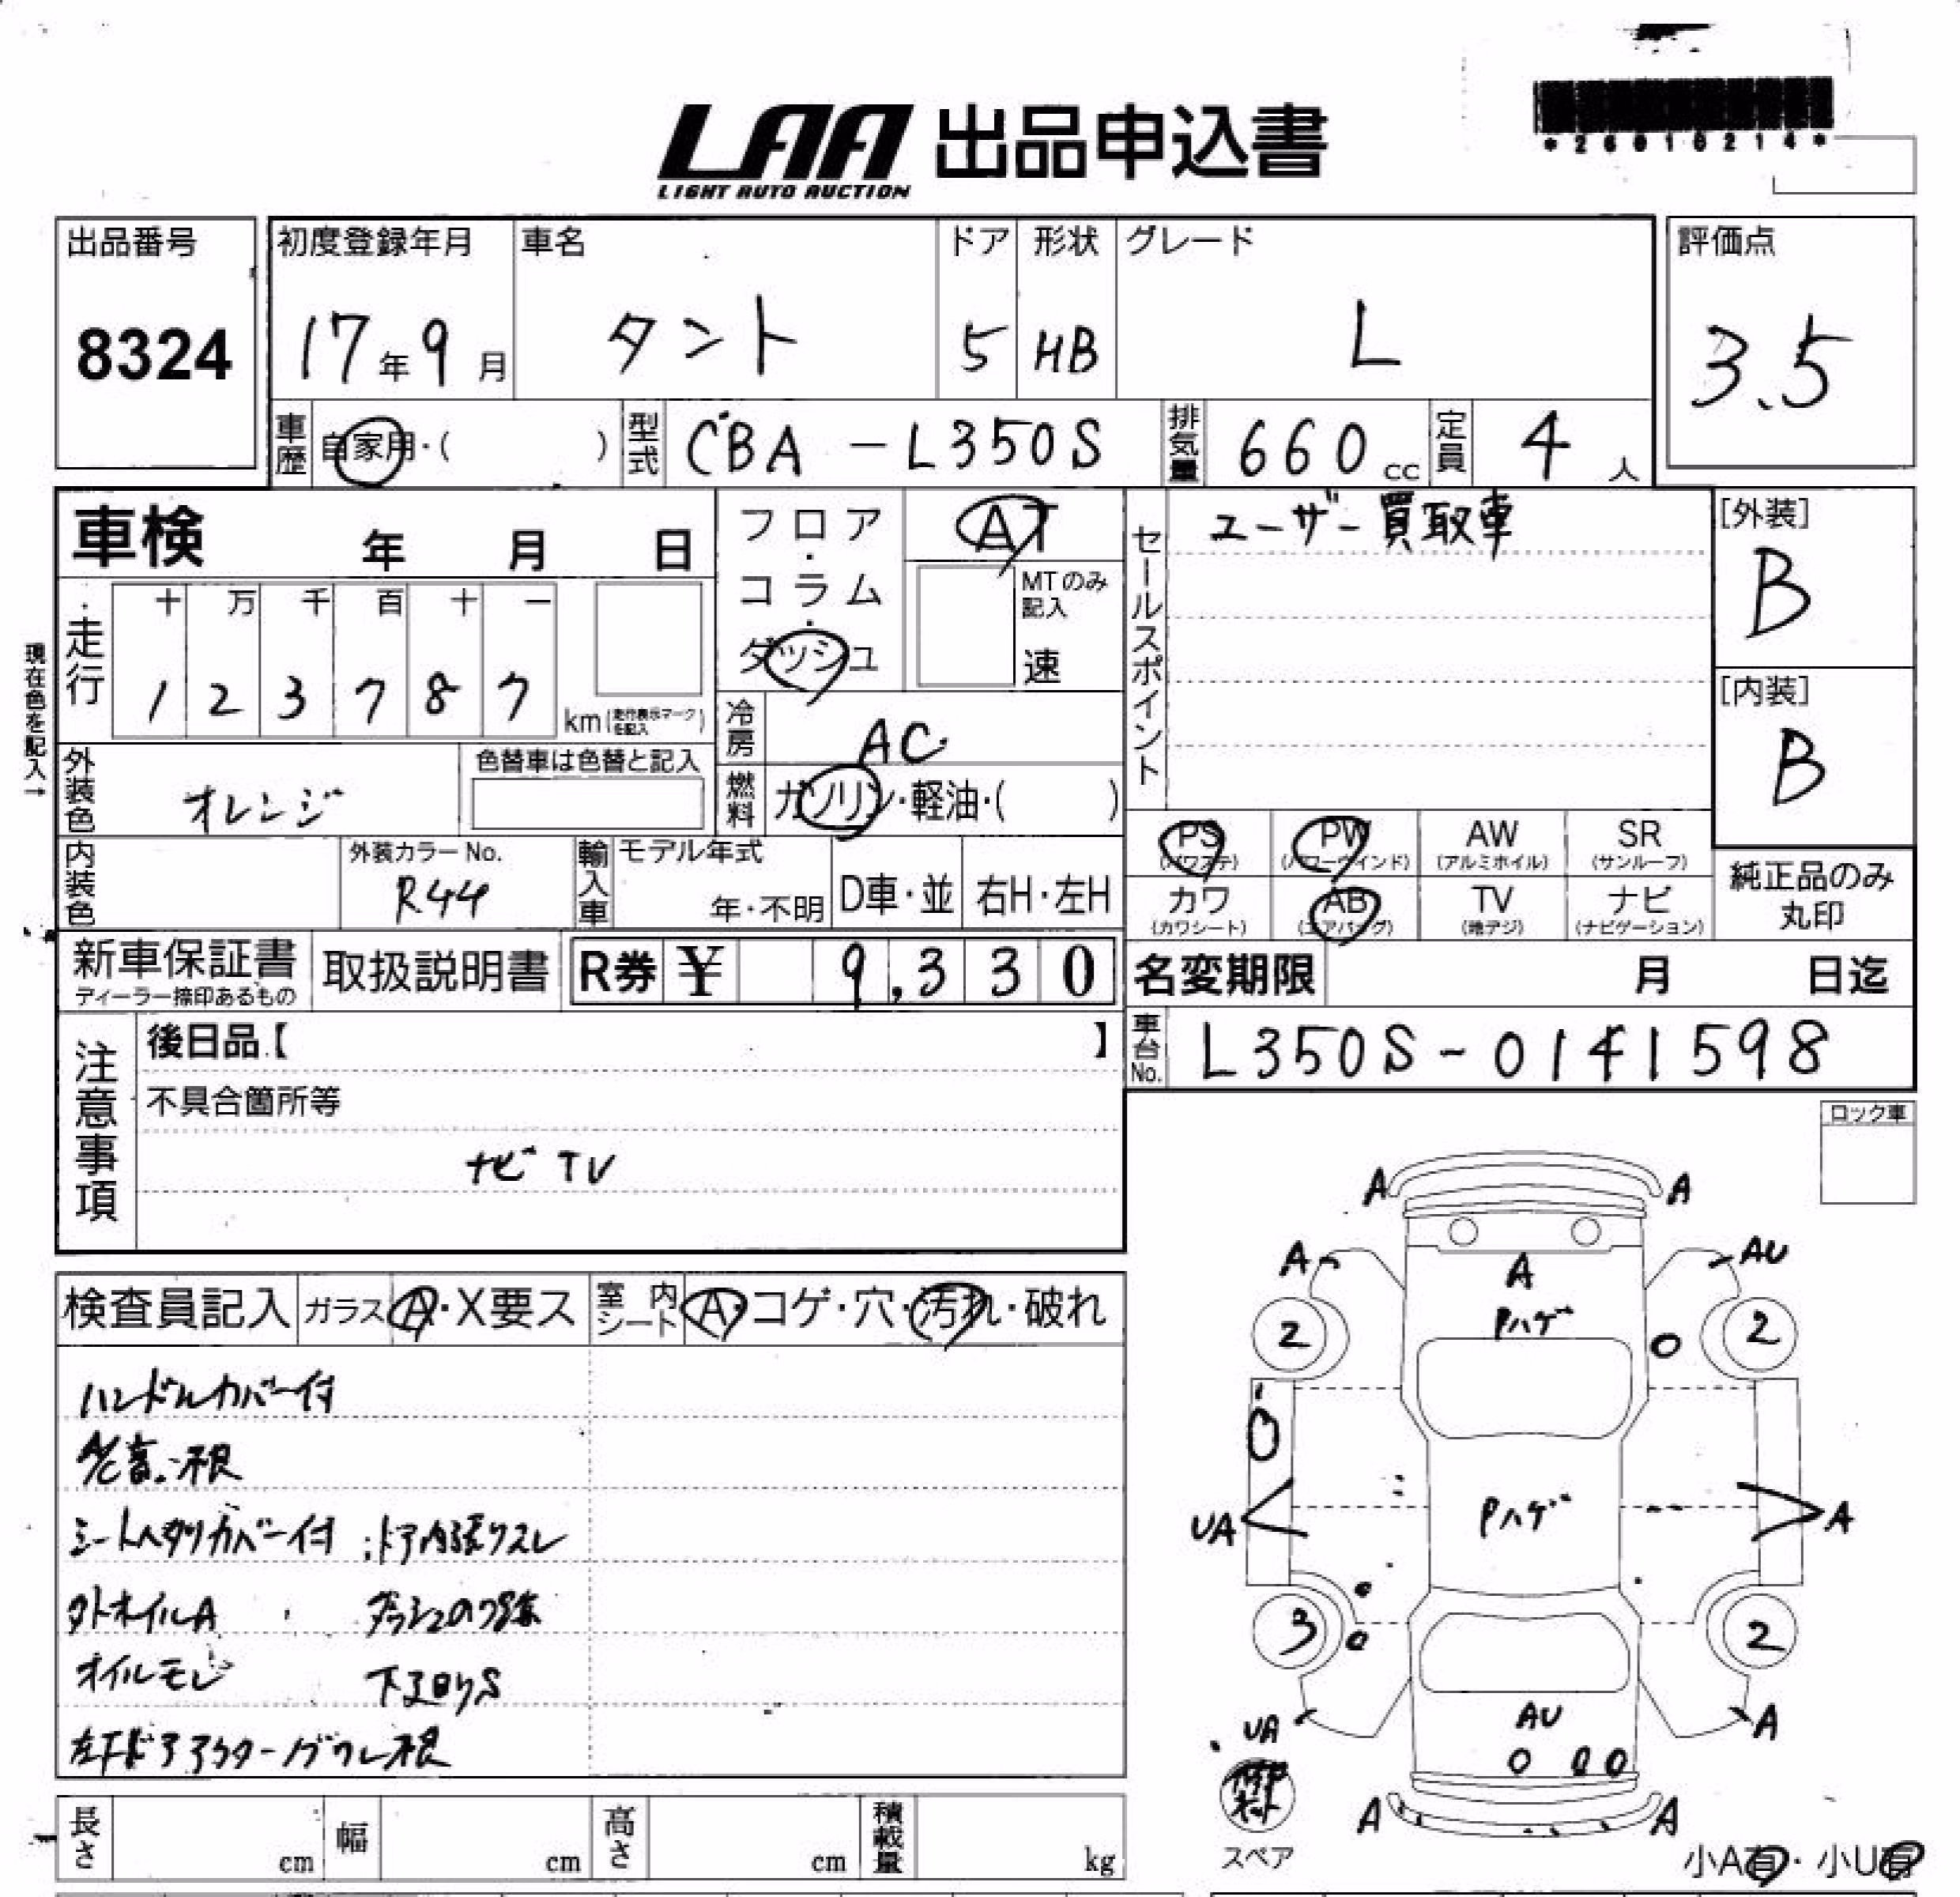 LAA 出品申込書
LIGHT AUTO AUCTION
*26010214*
出品番号
8324
初度登録年月
17年9月
車名
タント
ドア
5
形状
HB
グレード
L
評価点
3.5
車歴
自家用・( )
型式
CBA-L350S
排気量
660cc
定員
4人
車検 年 月 日
フロア・コラム・ダッシュ
AT
MTのみ記入
速
セールスポイント
ユーザー買取車
[外装]
B
[内装]
B
現在色を記入→
走行
十 万 千 百 十 一
1 2 3 7 8 7
km(走行表示マークを記入)
冷房
AC
外装色
オレンジ
色替車は色替と記入
燃料
ガソリン・軽油・( )
PS (パワステ)
PW (パワーウインド)
AW (アルミホイル)
SR (サンルーフ)
カワ (カワシート)
AB (エアバッグ)
TV (地デジ)
ナビ (ナビゲーション)
純正品のみ丸印
内装色
外装カラーNo.
R44
輸入車
モデル年式
年・不明
D車・並
右H・左H
新車保証書
ディーラー捺印あるもの
取扱説明書
R券 ¥ 9,330
名変期限 月 日迄
車台No.
L350S-0141598
注意事項
後日品【 】
不具合箇所等
ナビ TV
ロック車
検査員記入
ガラス A・X要ス
室内シート A・コゲ・穴・汚れ・破れ
ハンドルカバー付
シートヘタリカバー付
ドア内張りスレ
オイルモレ
下廻りS
A A
A AU
A
Pハゲ
2 2
UA A
Pハゲ
3 2
UA A
AU
A A
スペア
小A有・小U有
長さ cm
幅 cm
高さ cm
積載量 kg